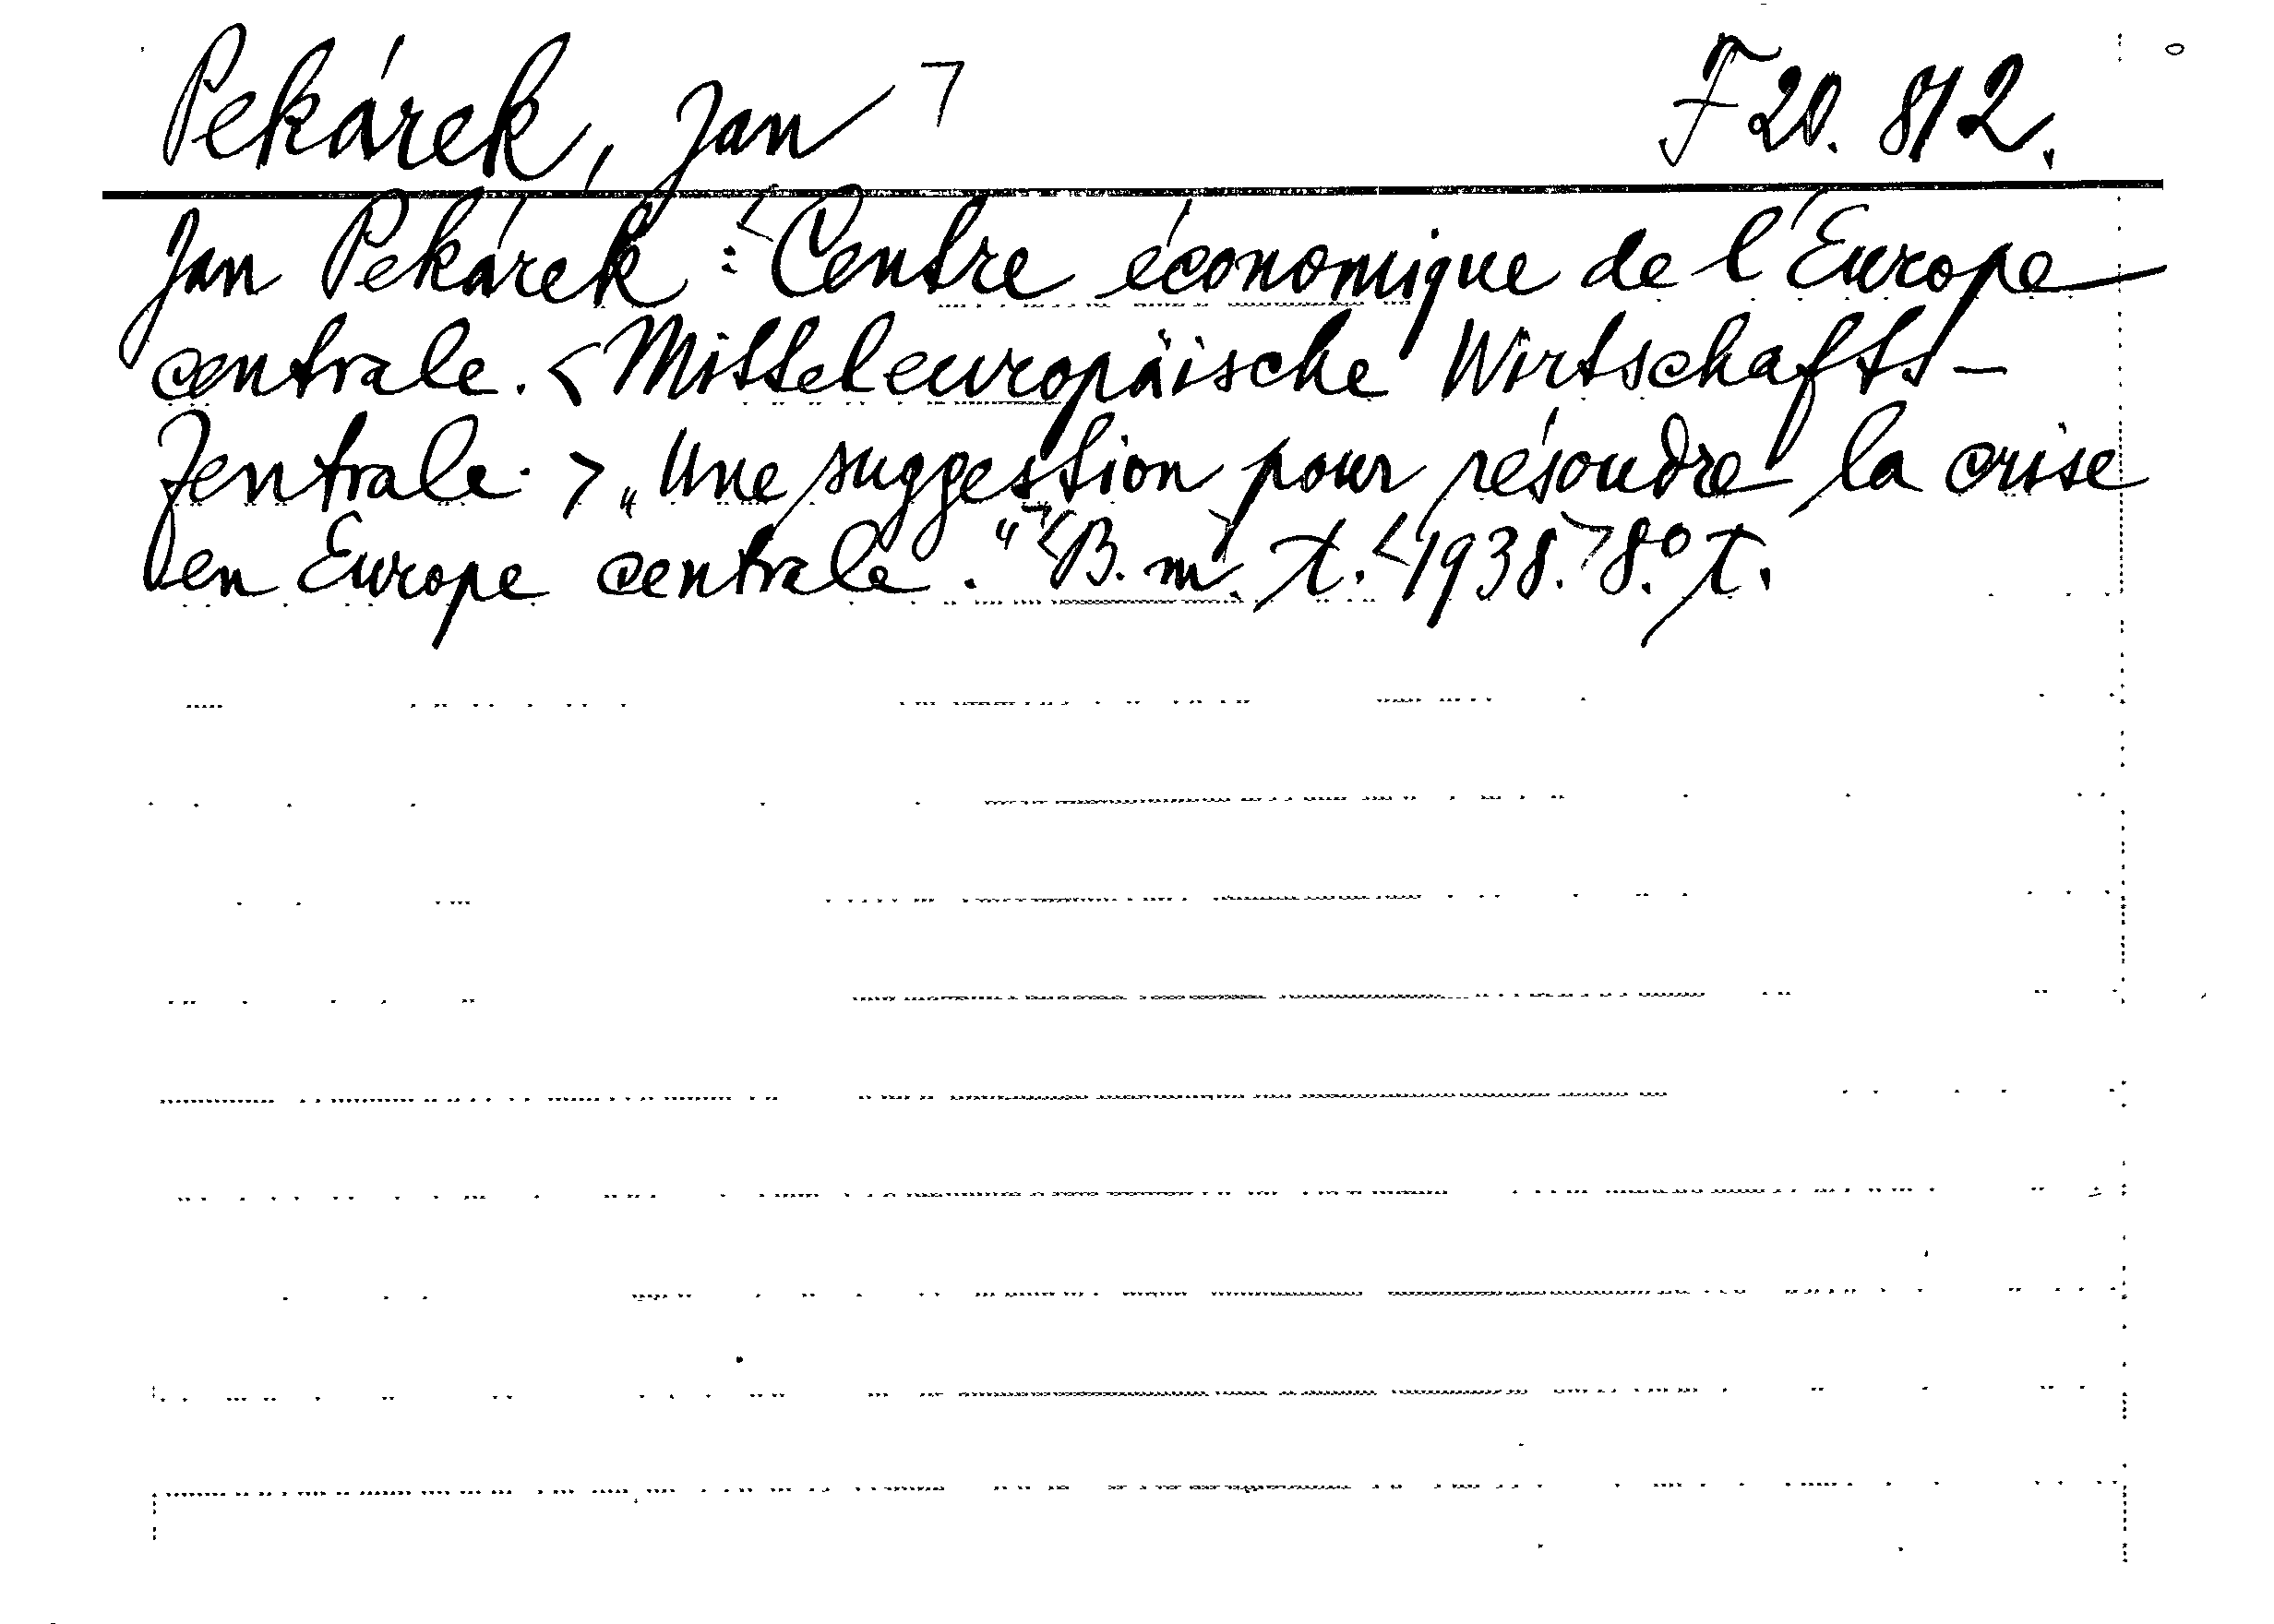 Pekárek, Jan ⌝ F 20. 812.
Jan Pekárek: <Centre économique de l'Europe
centrale. <Mitteleuropäische Wirtschafts-
Zentrale.> „Une suggestion pour résoudre la crise
en Europe centrale."> <B. m.> t. <1938.> 8.° t.